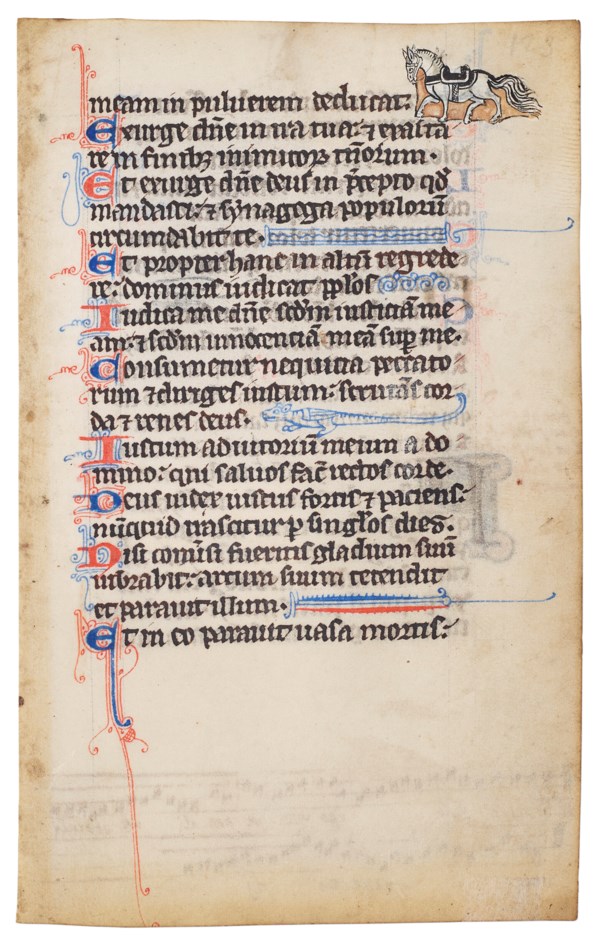 meam in puluerem deducat:
Exurge dn̄e in ira tua: ⁊ exalta
re in finibꝫ inimicoꝝ tuoꝝum.
Et exurge dn̄e deus in p̄cepto qd̄
mandasti: ⁊ synagoga populoꝝū
circumdabit te.
Et propter hanc in altū regrede
re: dominus iudicat pp̄los
Iudica me dn̄e scd̄m iusticiā me
am: ⁊ scd̄m innocenciā meā sup̄ me.
Consumetur nequicia peccato
rum ⁊ diriges iustum: scrutās cor
da ⁊ renes deus.
Iustum adiutoriū meum a do
mino: qui saluos fac̄ rectos corde.
Deus iudex iustus fortis ⁊ paciens:
nūquid irascitur p̄ singl̄os dies.
Nisi conūsi fueritis gladium suū
uibrabit: arcum suum tetendit
et parauit illum.
Et in eo parauit uasa mortis: